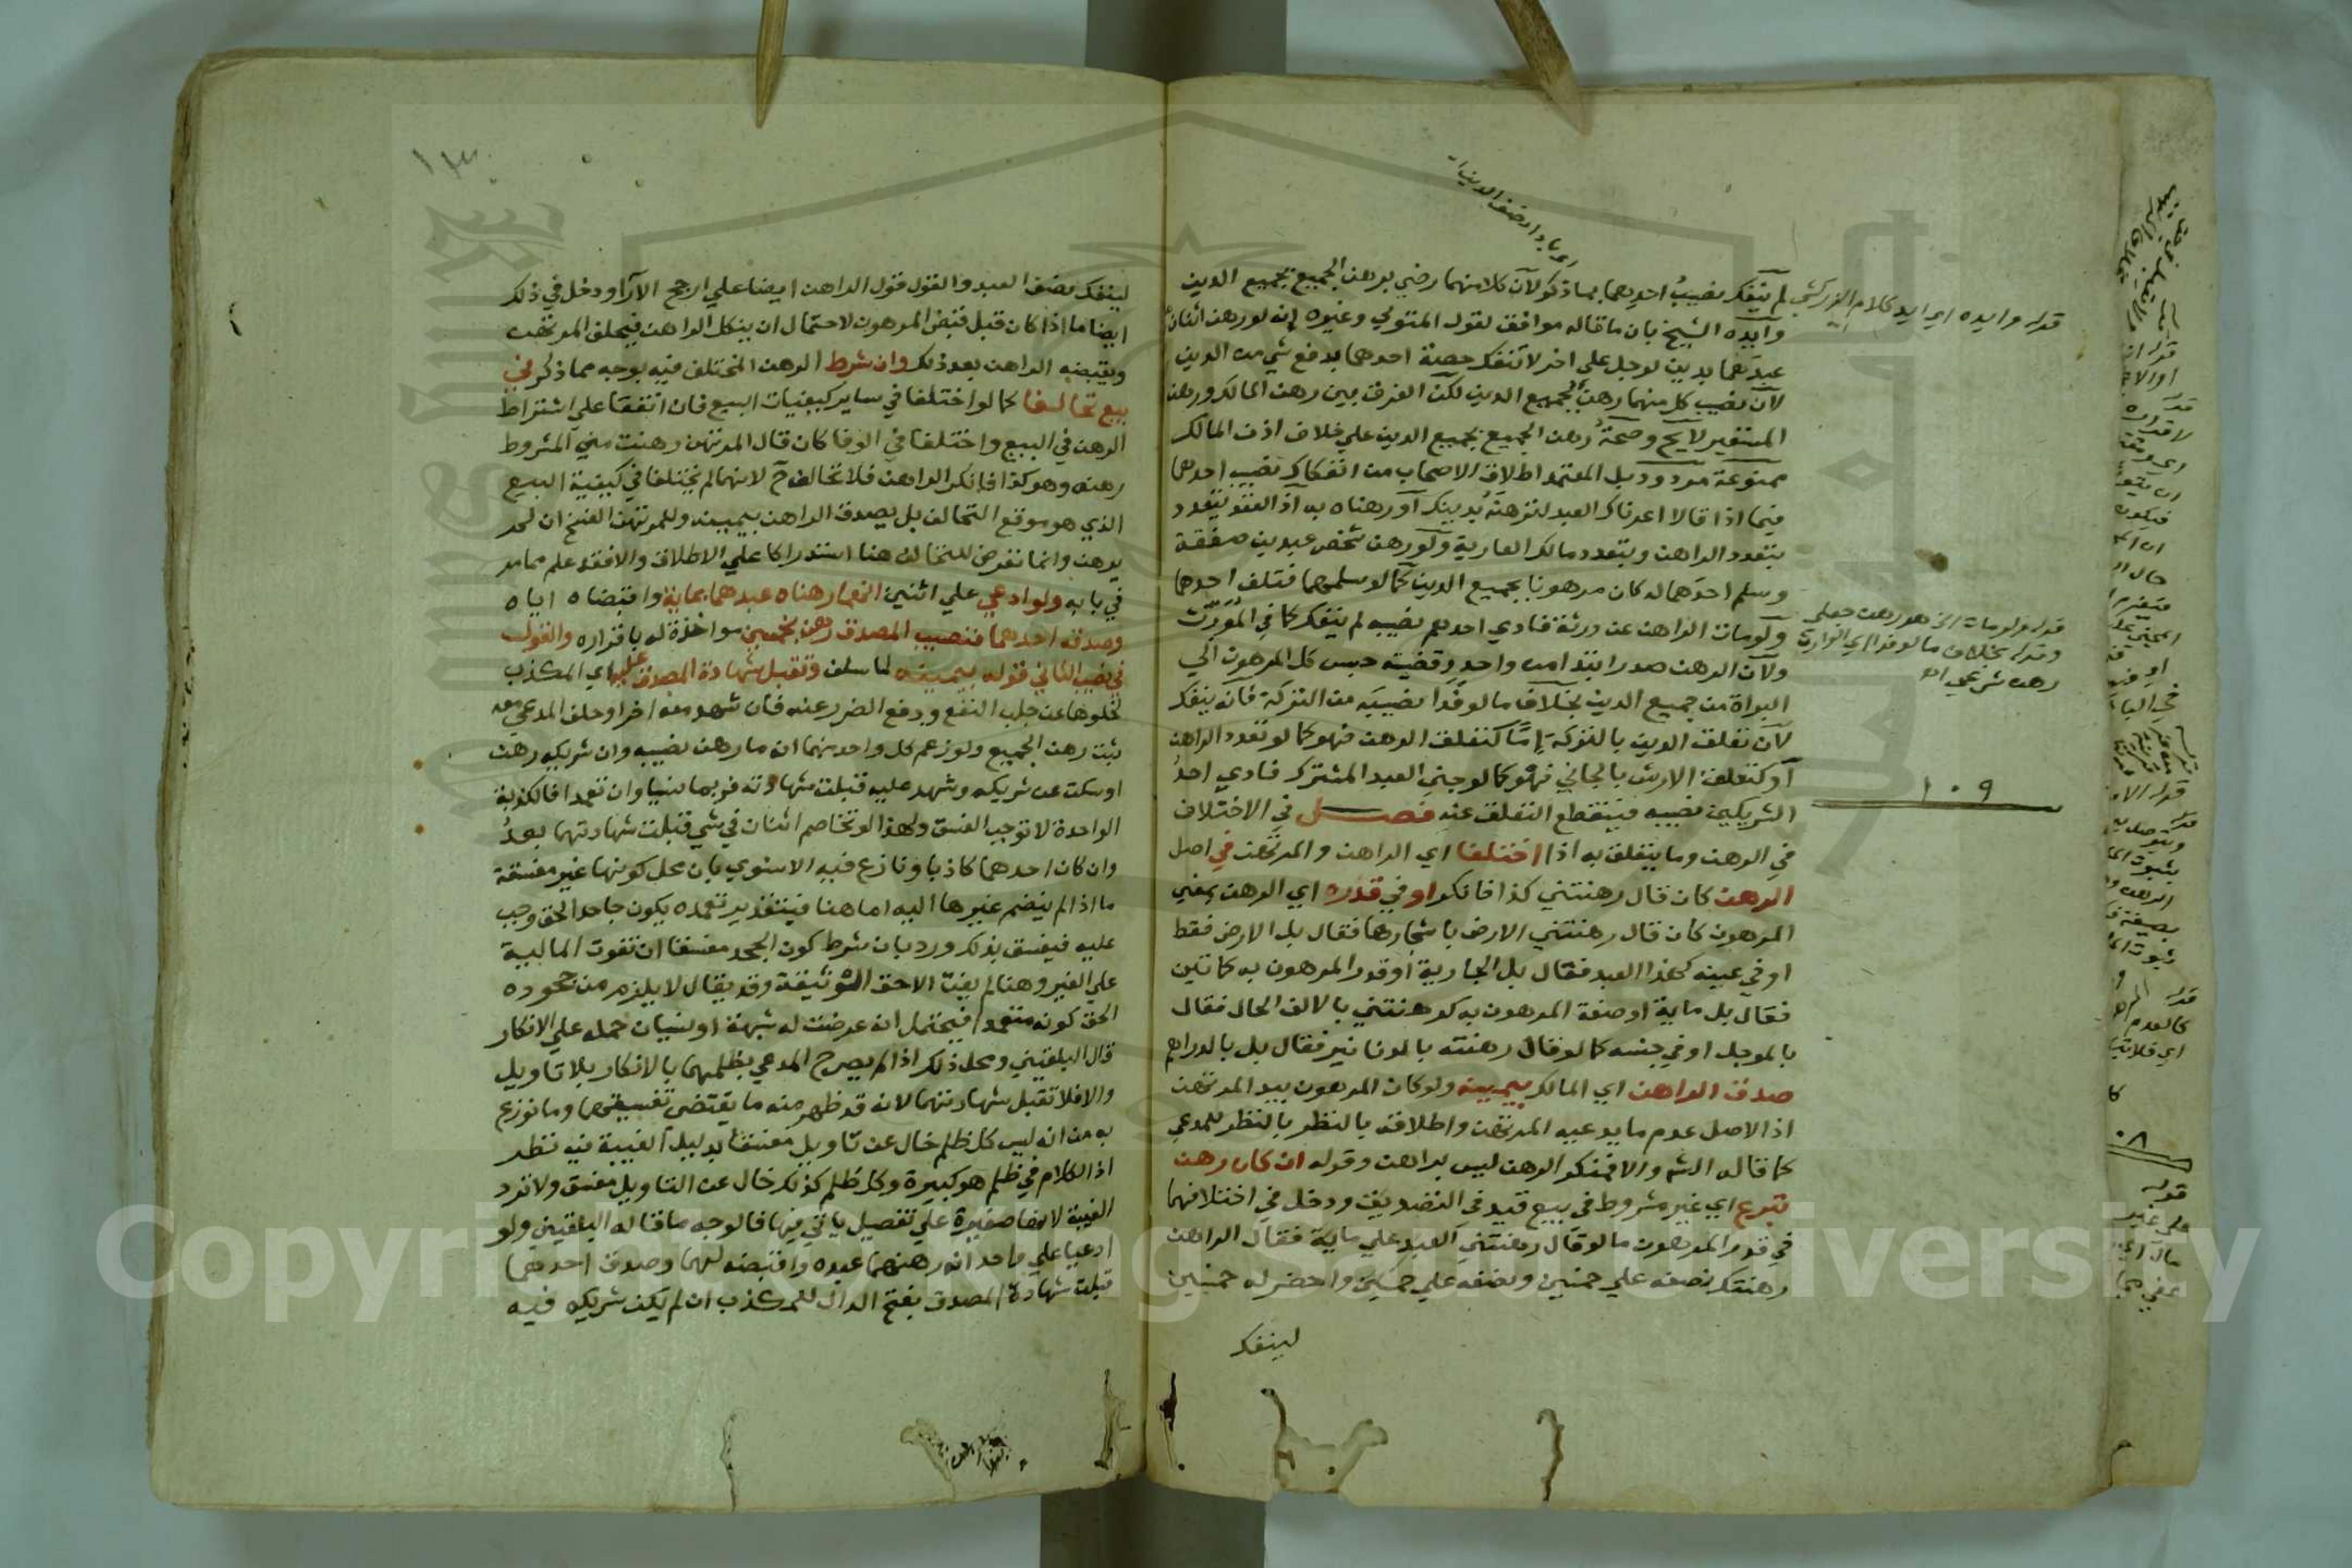 لم ينفك نصيب احدهما بما ذكر لان كلا منهما رضي برهن الجميع بجميع الدين
وايده الشيخ بان ما قاله موافق لقول المتولي وغيره انه لو رهن اثنان
عبدهما بدين لرجل على اخر لا تنفك حصة احدهما بدفع شي من الدين
لان نصيب كل منهما رهن بجميع الدين لكن الفرق بين رهن المالك ورهن
المستعير لايح وصحة رهن الجميع بجميع الدين علي خلاف اذن المالك
ممنوعة مردود بل المعتمد اطلاق الاصحاب من انفكاك نصيب احدهما
فيما اذا قالا اعرناك العبد لترهنه بدينك او رهناه به اذ العقد يتعدد
بتعدد الراهن وبتعدد مالك العارية ولو رهن شخص عبدين صفقة
وسلم احدهما له كان مرهونا بجميع الدين كما لو سلمهما فتلف احدهما
ولو مات الراهن عن ورثة ففدي احدهم نصيبه لم ينفك كما في المورث
ولان الرهن صدر ابتدا من واحد وقضيته حبس كل المرهون الي
البراة من جميع الدين بخلاف ما لو فدا نصيبه من التركة فانه ينفك
لان تعلق الدين بالتركة اما كتعلق الرهن فهو كما لو تعدد الراهن
او كتعلق الارش بالجاني فهو كما لو جني العبد المشترك ففدي احد
الشريكين نصيبه فينقطع التعلق عنه فصل في الاختلاف
في الرهن وما يتعلق به اذا اختلفا اي الراهن والمرتهن في اصل
الرهن كان قال رهنتني كذا فانكر او في قدره اي الرهن بمعني
المرهون كان قال رهنتني الارض باشجارها فقال بل الارض فقط
او في عينه كهذا العبد فقال بل الجارية او قدر المرهون به كماتين
فقال بل ماية او صفة المرهون به كرهنتني بالالف الحال فقال
بالموجل او في جنسه كما لو قال رهنته بالدنانير فقال بل بالدراهم
صدق الراهن اي المالك بيمينه ولو كان المرهون بيد المرتهن
اذ الاصل عدم ما يدعيه المرتهن واطلاقه بالنظر بالنظر للمدعي
كما قاله الشم والا فمنكر الرهن ليس براهن وقوله ان كان رهن
تبرع اي غير مشروط في بيع قيد في التصديق ودخل في اختلافهما
في قدر المرهون ما لو قال رهنتني العبد علي ماية فقال الراهن
رهنتك نصفه علي خمسين ونصفه علي خمسين واحضر له خمسين
لينفك
قوله وايده اي ايد كلام الزركشي
قوله ولو مات الخ هو رهن جعلي
وقوله بخلاف ما لو فدا اي الوارث
رهن شرعي اه
١٠٩
لينفك نصف العبد والقول قول الراهن ايضا علي ارجح الآرا ودخل في ذلك
ايضا ما اذا كان قبل قبض المرهون لاحتمال ان ينكل الراهن فيحلف المرتهن
ويقبضه الراهن بعد ذلك وان شرط الرهن المختلف فيه بوجه مما ذكر في
بيع تحالفا كما لو اختلفا في ساير كيفيات البيع فان اتفقا علي اشتراط
الرهن في البيع واختلفا في الوفا كان قال المرتهن رهنت مني المشروط
رهنه وهو كذا فانكر الراهن فلا تحالف ح لانهما لم يختلفا في كيفية البيع
الذي هو موقع التحالف بل يصدق الراهن بيمينه وللمرتهن الفسخ ان لم
يرهن وانما تعرض للتحالف هنا استدراكا علي الاطلاق والا فقد علم مما مر
في بابه ولو ادعي علي اثنين انهما رهناه عبدهما بماية واقبضاه اياه
وصدقه احدهما فنصيب المصدق رهن بخمسين مواخذة له باقراره والقول
في نصيب الثاني قوله بيمينه لما سلف وتقبل شهادة المصدق عليه اي المكذب
لخلوها عن جلب النفع ودفع الضرر عنه فان شهد معه اخر او حلف المدعي معه
ثبت رهن الجميع ولو زعم كل واحد منهما انه ما رهن نصيبه وان شريكه رهن
او سكت عن شريكه وشهد عليه قبلت شهادته فربما نسيا وان تعمدا فالكذبة
الواحدة لا توجب الفسق ولهذا لو تخاصم اثنان في شي قبلت شهادتهما بعد
وان كان احدهما كاذبا ونازع فيه الاسنوي بان محل كونها غير مفسقة
ما اذا لم ينضم غيرها اليه اما هنا فبتقدير تعمده يكون جاحدا لحق وجب
عليه فيفسق بذلك ورد بان شرط كون الجحد مفسقا ان تفوت المالية
علي الغير وهنا لم يفت الا حق الوثيقة وقد يقال لا يلزم من جحوده
الحق كونه متعمدا فيحتمل انه عرضت له شبهة او نسيان حمله علي الانكار
قال البلقيني ومحل ذلك اذا لم يصرح المدعي بظلمهما بالانكار بلا تاويل
والا فلا تقبل شهادتهما لانه قد ظهر منه ما يقتضي تفسيقهما وما نوزع
به من انه ليس كل ظلم خال عن تاويل مفسقا بدليل الغيبة فيه نظر
اذ الكلام في ظلم هو كبيرة وكل ظلم كذلك خال عن التاويل مفسق ولا ترد
الغيبة لانها صغيرة علي تفصيل ياتي فيها فالوجه ما قاله البلقيني ولو
ادعيا علي واحد انه رهنهما عبده واقبضه لهما وصدق احدهما
قبلت شهادة المصدق بفتح الدال للمكذب ان لم يكن شريكه فيه
Copyright © King Saud University